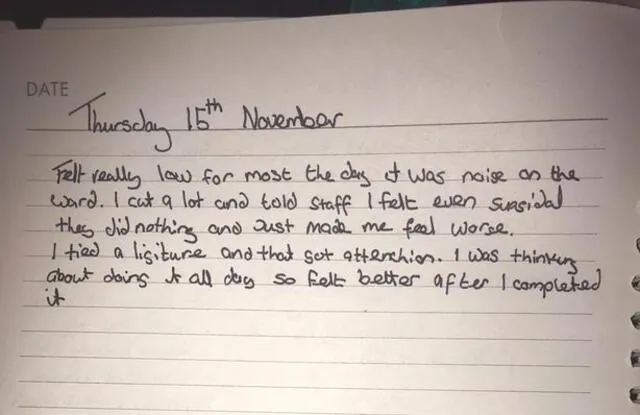 DATE
Thursday 15th November
Felt really low for most the day it was noise on the
ward. I cut a lot and told staff I felt even suesidal
they did nothing and Just made me feel worse.
I tied a ligiture and that got attenchion. I was thinking
about doing it all day so felt better after I completed
it